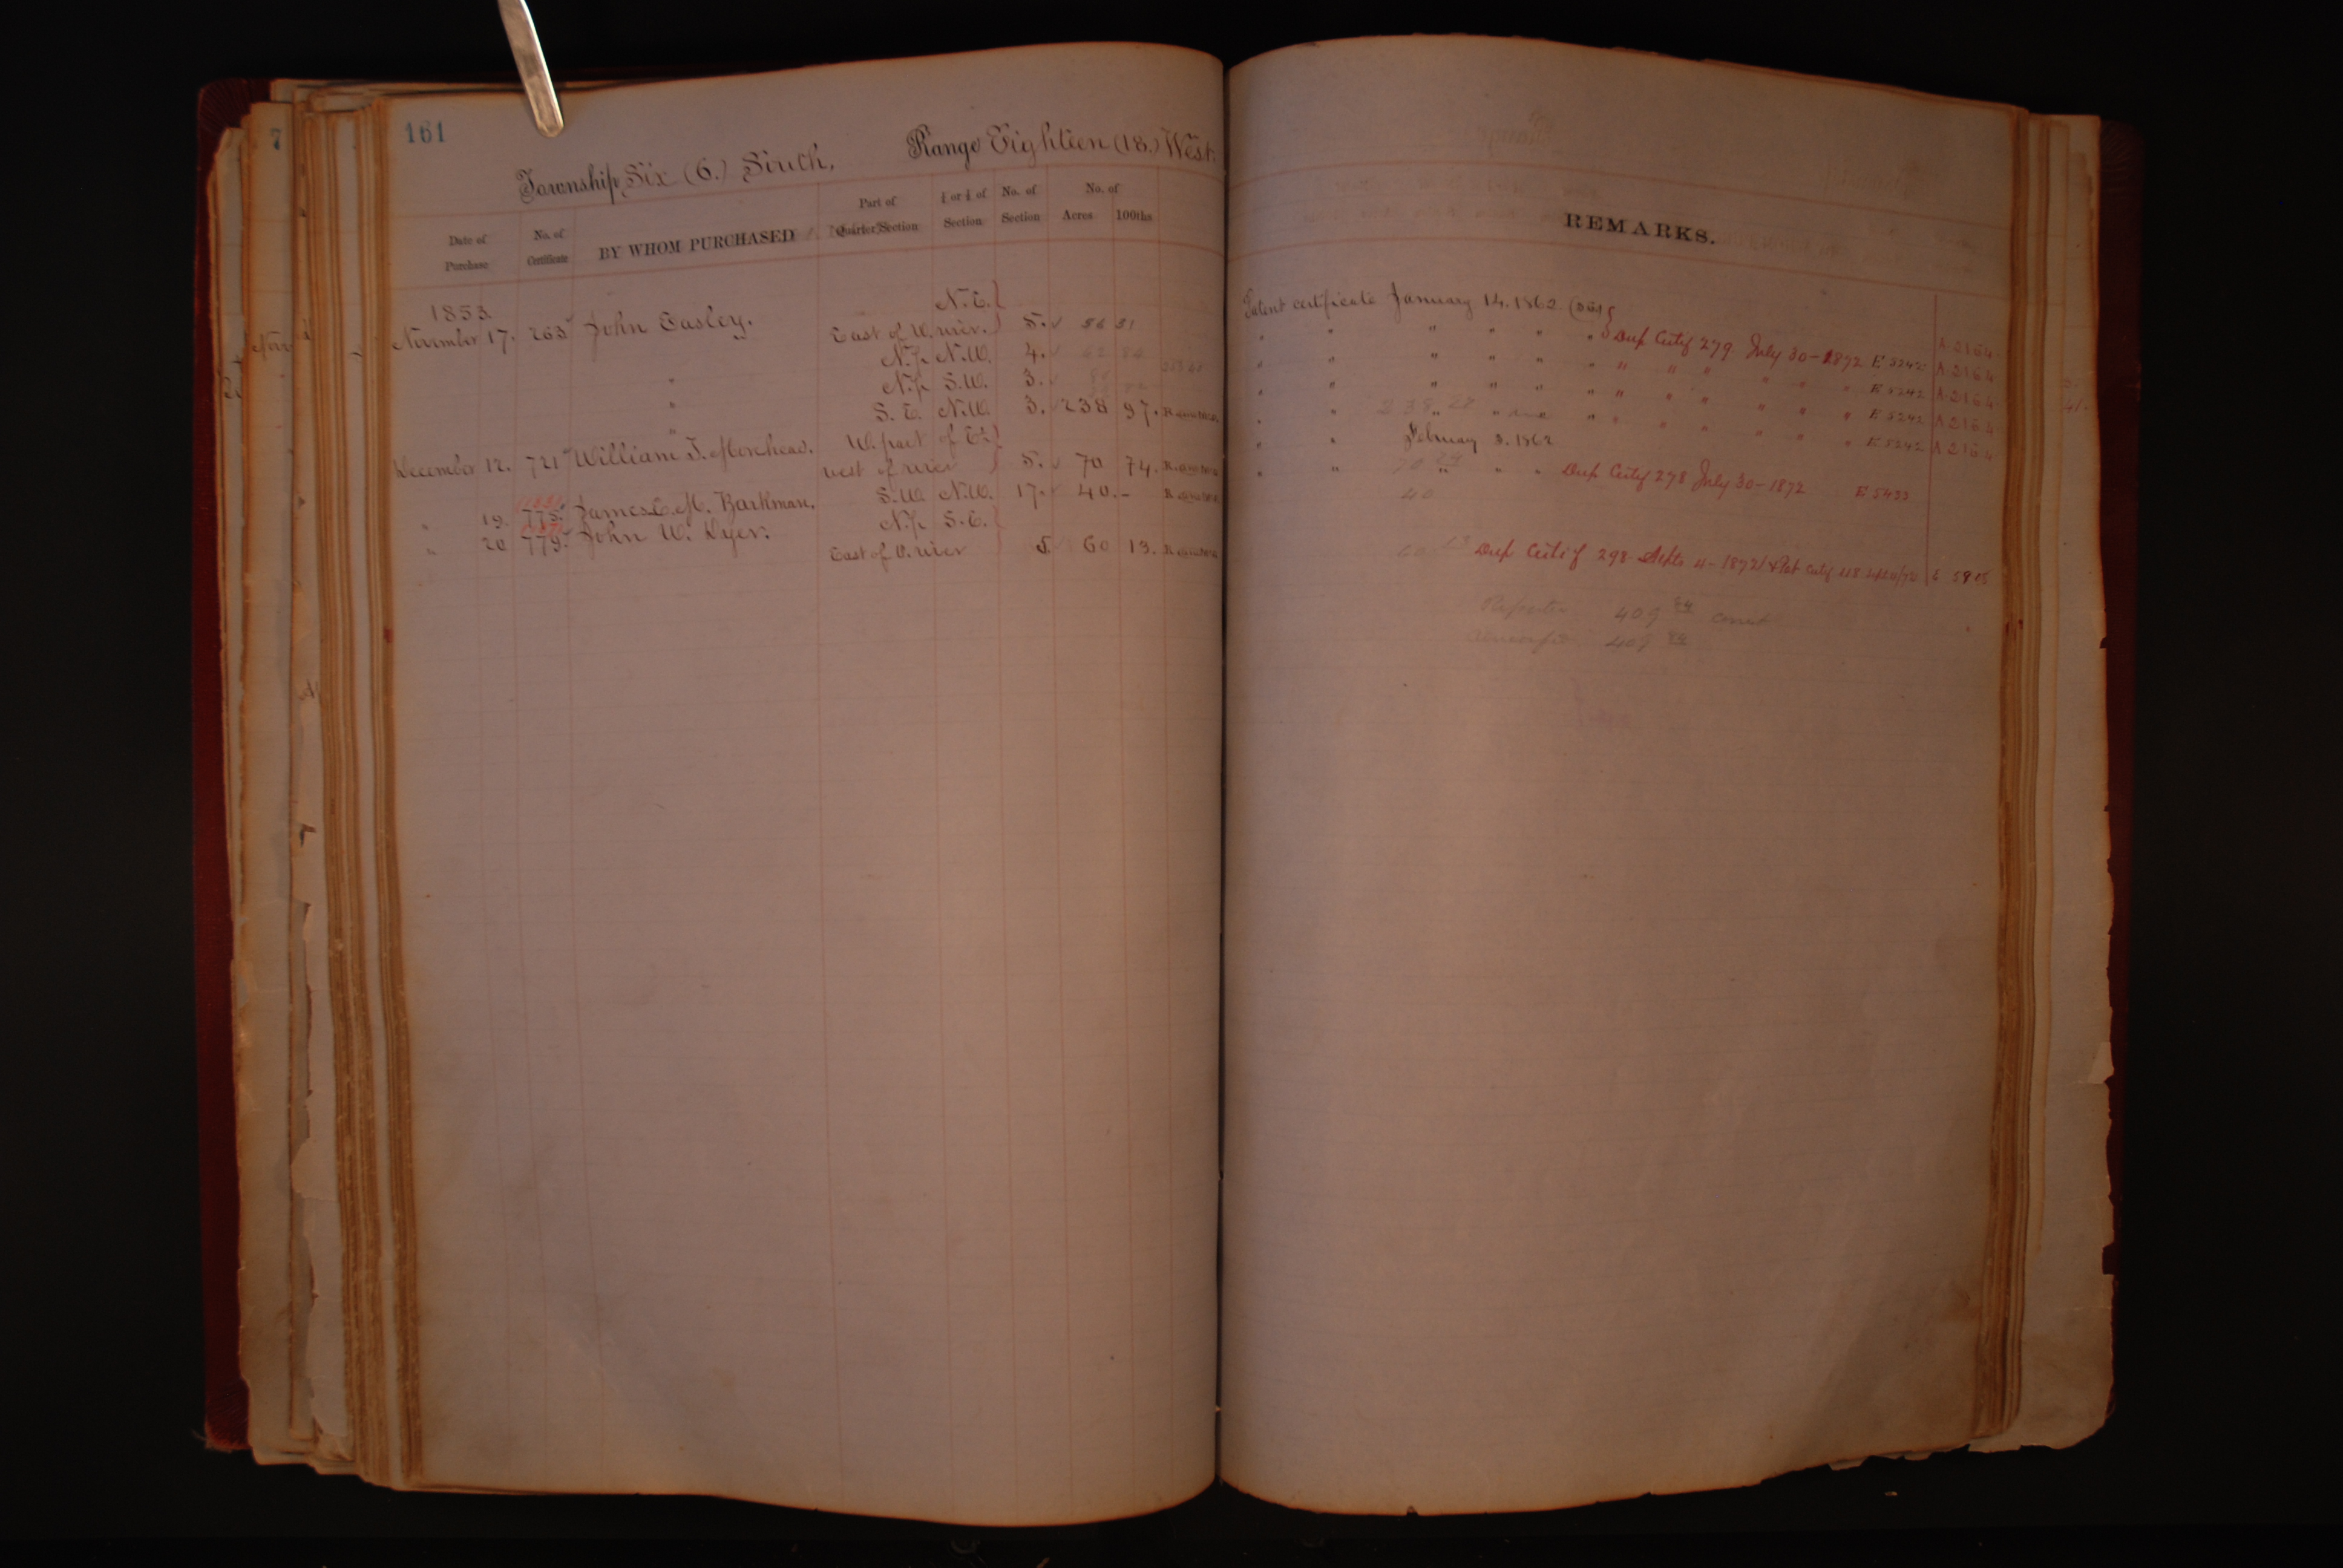 161
7
Township Six (6.) South, Range Eighteen (18.) West
Date of Purchase
No. of Certificate
BY WHOM PURCHASED
Part of Quarter Section
¼ or ½ of Section
No. of Section
No. of
Acres 100ths
REMARKS.
1853.
N.E. }
November 17. 263 John Easley. East of W. river. } 5. 56 31
" N. ½ N.W. 4. 62 84
" N. ½ S.W. 3.
" S. E. N.W. 3. 238 97.
W. part of E½ }
December 12. 721 William J. Morehead. west of river } 5. 70 74.
" 19. 775 James E. M. Barkman. S.W. N.W. 17. 40.-
N. ½ S.E. }
" 20 779 John W. Dyer. East of O. river } 5. 60 13.
Patent certificate January 14. 1862.
" " " " " " Dup Certif 279 July 30-1872 E 5242 A.2164
" " " " " " " " " " " " E 5242 A.2164
" " " " " " " " " " " " E 5242 A.2164
" " " " " " " " " " " E 5242 A 2164
" " February 3. 1862
" " " " " Dup Certif 278 July 30-1872 E 5433
40
Dup Certif 298- Septr 4-1872
409 84 correct
409 84